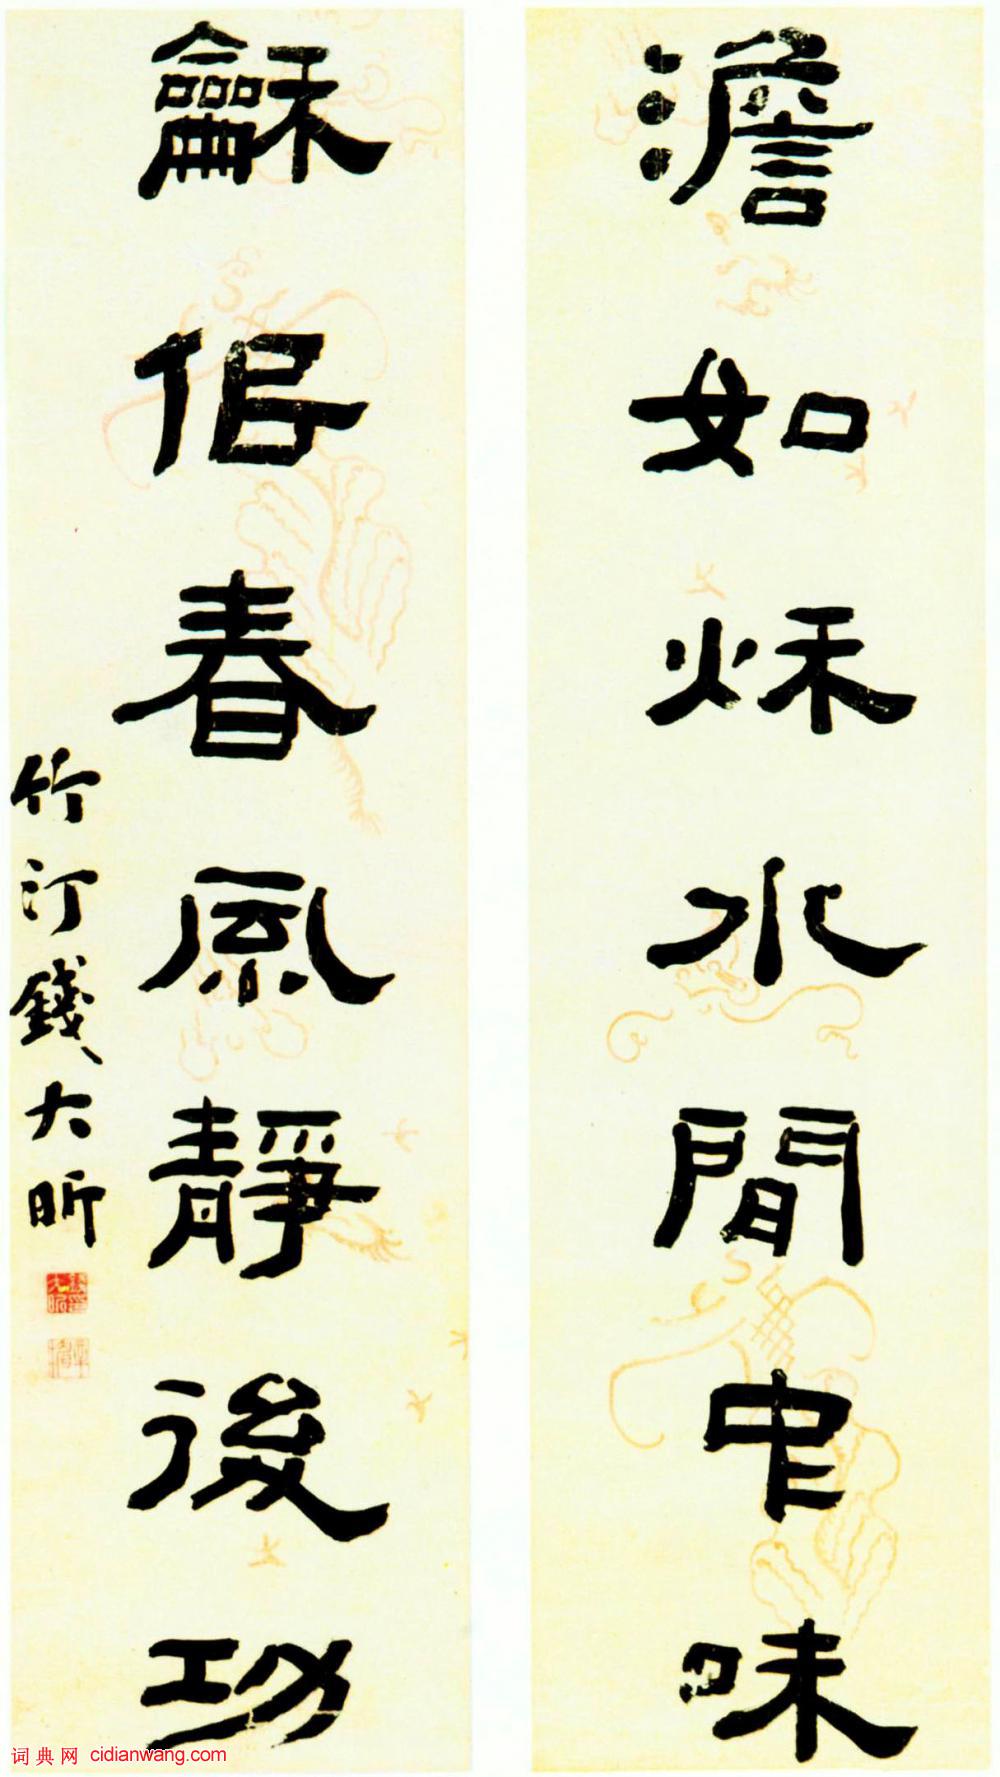 澹如秌水閒中味
龢佀春風靜後功
竹汀錢大昕
词典网 cidianwang.com